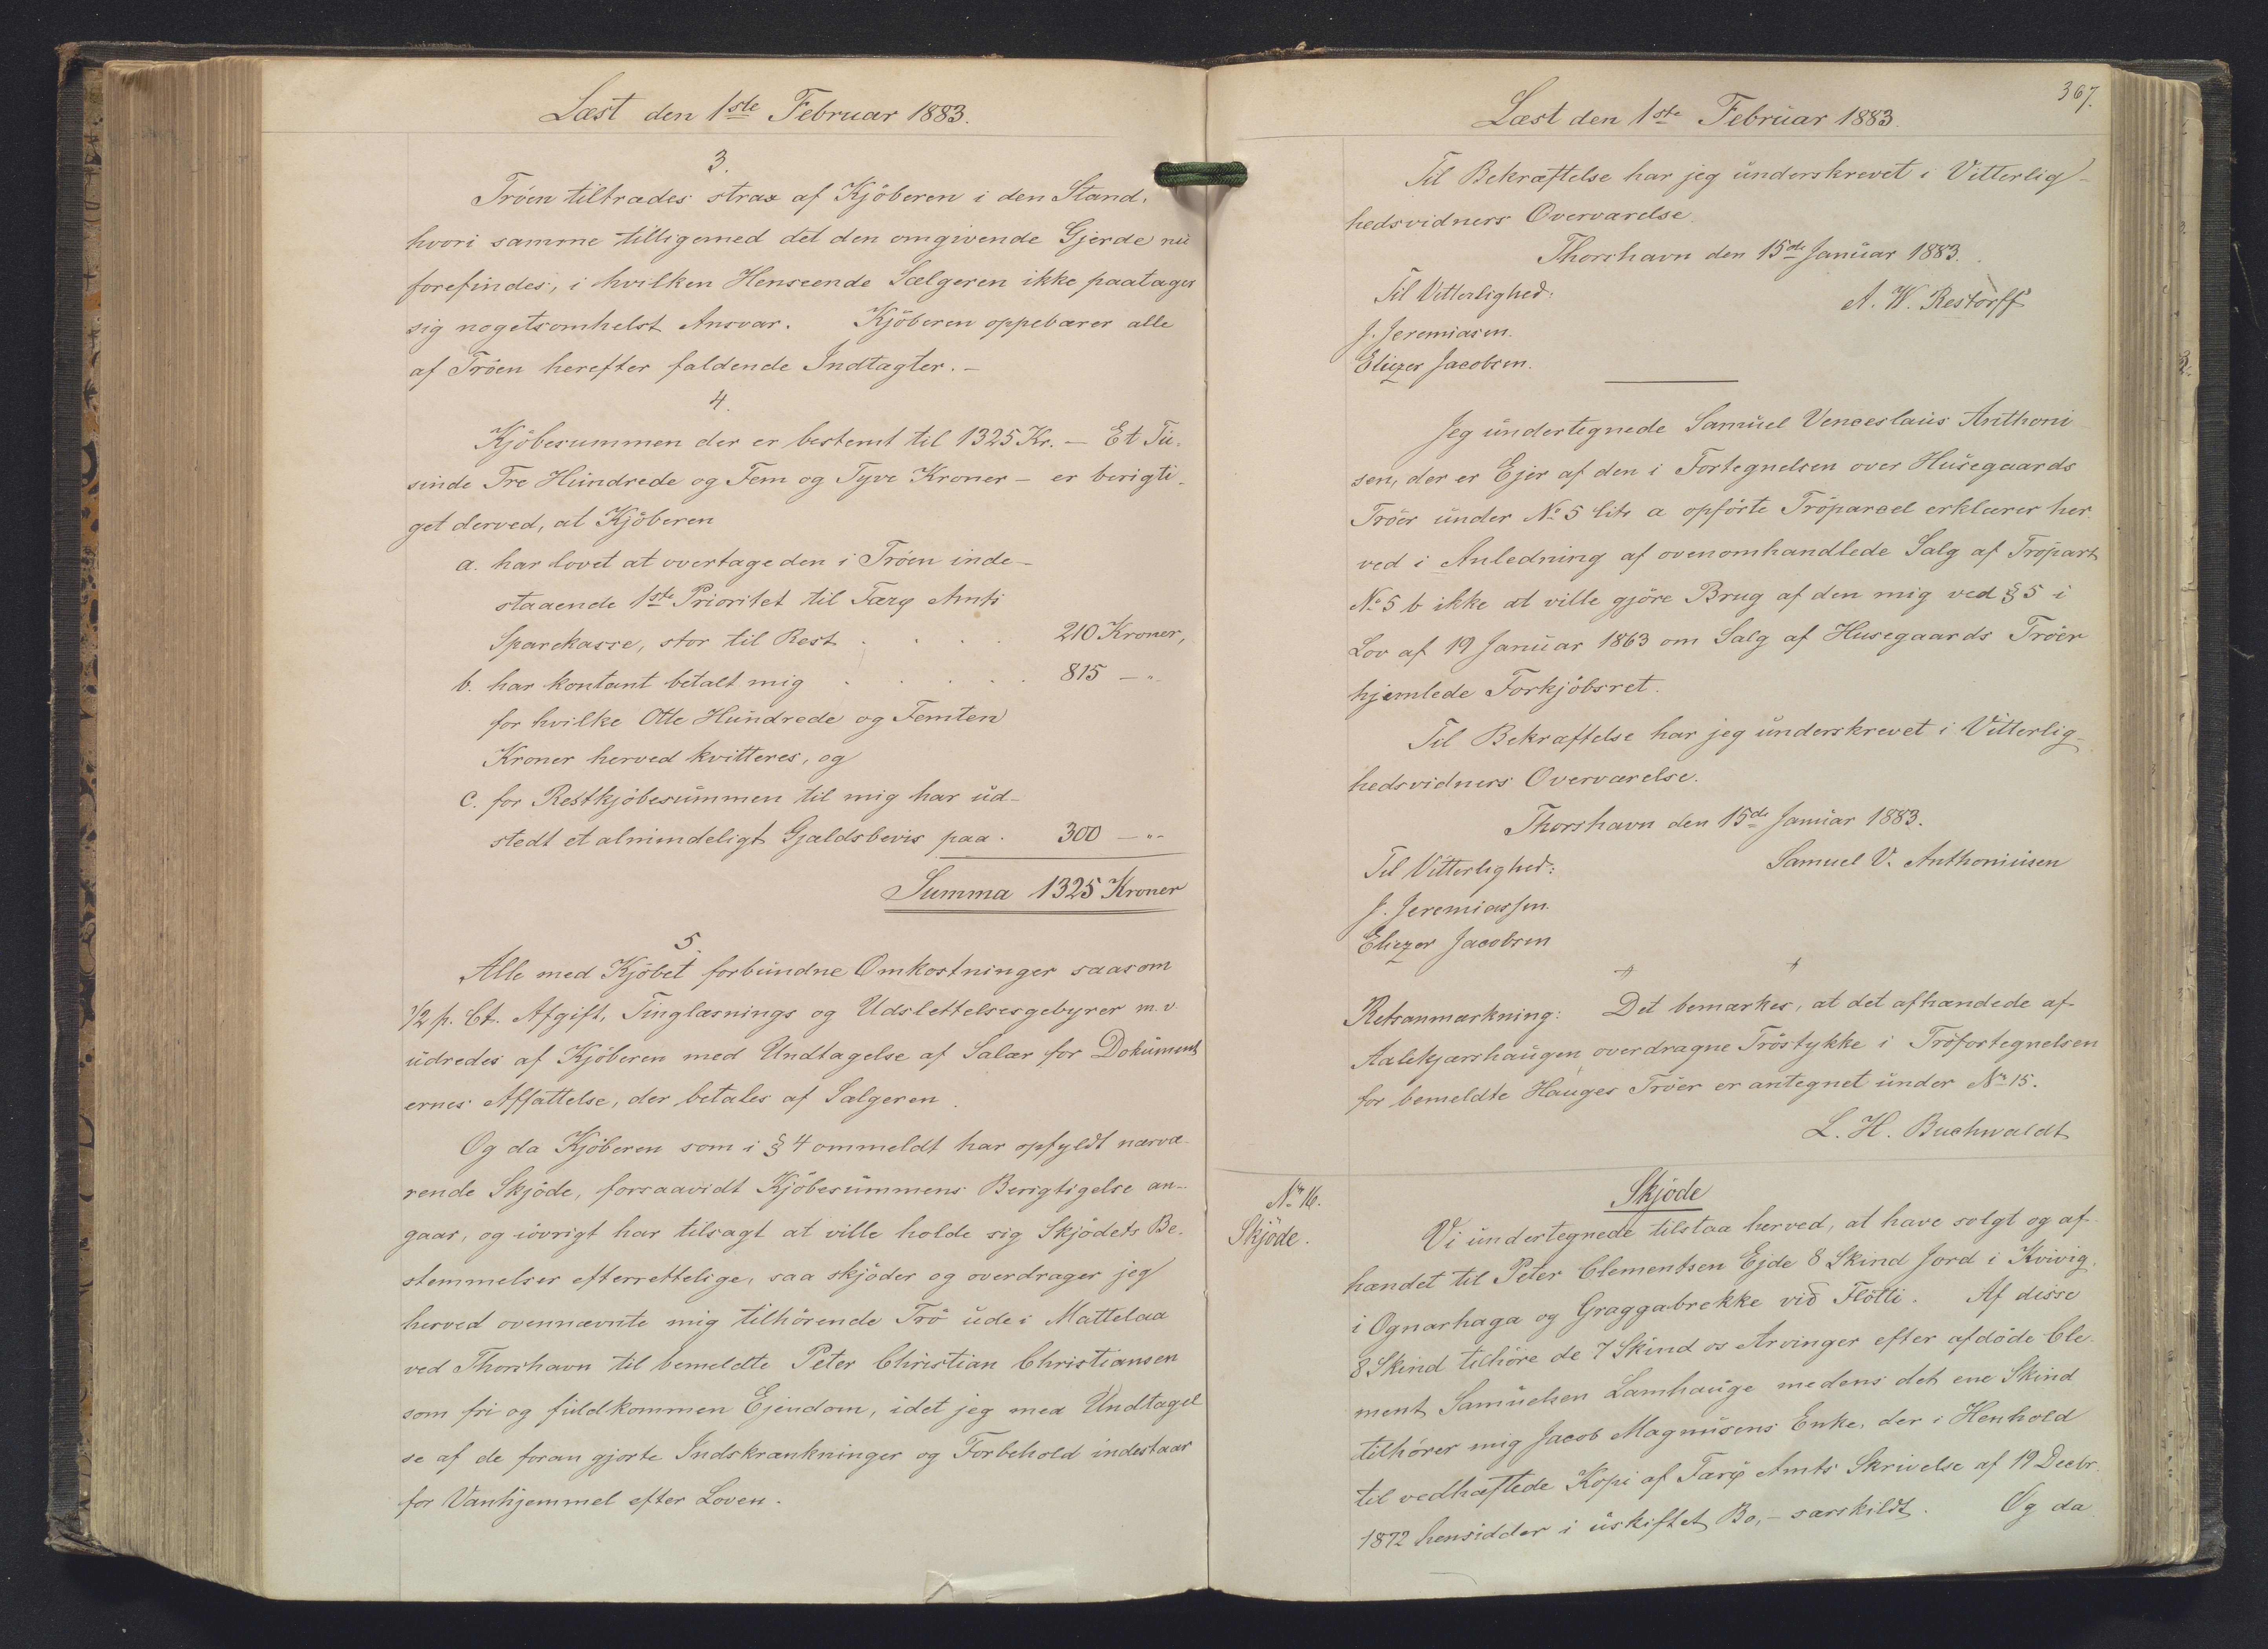 Læst den 1ste Februar 1883.
3.
Tröen tiltrædes strax af Kjöberen i den Stand,
hvori samme tilligemed det den omgivende Gjerde nu
forefindes, i hvilken Henseende Sælgeren ikke paatager
sig nogetsomhelst Ansvar. Kjöberen oppebærer alle
af Tröen herefter faldende Indtægter. –
4.
Kjöbesummen der er bestemt til 1325 Kr. – Et Tu-
sinde Tre Hundrede og Fem og Tyve Kroner – er berigti-
get derved, at Kjöberen
a. har lovet at overtage den i Tröen inde-
staaende 1ste Prioritet til Færø Amts
Sparekasse, stor til Rest . . . . 210 Kroner,
b. har kontant betalt mig . . . . . 815 – " -
for hvilke Otte Hundrede og Femten
Kroner herved kvitteres, og
c. for Restkjöbesummen til mig har ud-
stedt et almindeligt Gjældsbevis paa . 300 – " -
Summa 1325 Kroner
5.
Alle med Kjöbet forbundne Omkostninger saasom
1/2 p. Ct. Afgift, Tinglæsnings og Udslettelsesgebyrer m. v
udredes af Kjöberen med Undtagelse af Salær for Dokument
ernes Affattelse, der betales af Sælgeren.
Og da Kjöberen som i § 4 ommeldt har opfyldt nærvæ-
rende Skjöde, forsaavidt Kjöbesummens Berigtigelse an-
gaar, og iövrigt har tilsagt at ville holde sig Skjödets Be-
stemmelser efterrettelige, saa skjöder og overdrager jeg
herved ovennævnte mig tilhörende Trö ude i Mattelaa
ved Thorshavn til bemeldte Peter Christian Christiansen
som fri og fuldkommen Ejendom, idet jeg med Undtagel
se af de foran gjorte Indskrænkninger og Forbehold indestaar
for Vanhjemmel efter Loven.
367.
Læst den 1ste Februar 1883.
Til Bekræftelse har jeg underskrevet i Vitterlig-
hedsvidners Overværelse.
Thorshavn den 15de Januar 1883.
Til Vitterlighed: A. W. Restorff
J. Jeremiasen.
Eliezer Jacobsen.
Jeg undertegnede Samuel Venceslaus Anthoni
sen, der er Ejer af den i Fortegnelsen over Husegaards
Tröer under No 5 litr a opförte Tröparcel erklærer her
ved i Anledning af ovenomhandlede Salg af Tröpart
No 5 b ikke at ville gjöre Brug af den mig ved § 5 i
Lov af 19 Januar 1863 om Salg af Husegaards Tröer
hjemlede Forkjöbsret.
Til Bekræftelse har jeg underskrevet i Vitterlig-
hedsvidners Overværelse.
Thorshavn den 15de Januar 1883.
Til Vitterlighed: Samuel V. Anthoniusen
J. Jeremiassen.
Eliezer Jacobsen
Retsanmærkning: Det bemærkes, at det afhændede af
Aalekjærshaugen overdragne Tröstykke i Tröfortegnelsen
for bemeldte Hauges Tröer er antegnet under No 15.
L. H. Buchwaldt
No 16. Skjöde
Skjöde. Vi undertegnede tilstaa herved, at have solgt og af-
hændet til Peter Clementsen Ejde 8 Skind Jord i Kvivig.
i Ognarhaga og Graggabrekke við Flötti. Af disse
8 Skind tilhöre de 7 Skind os Arvinger efter afdöde Cle-
ment Samuelsen Lamhauge medens det ene Skind
tilhörer mig Jacob Magnusens Enke, der i Henhold
til vedhæftede Kopi af Færø Amts Skrivelse af 19 Decbr.
1872 hensidder i uskiftet Bo, – særskildt. Og da